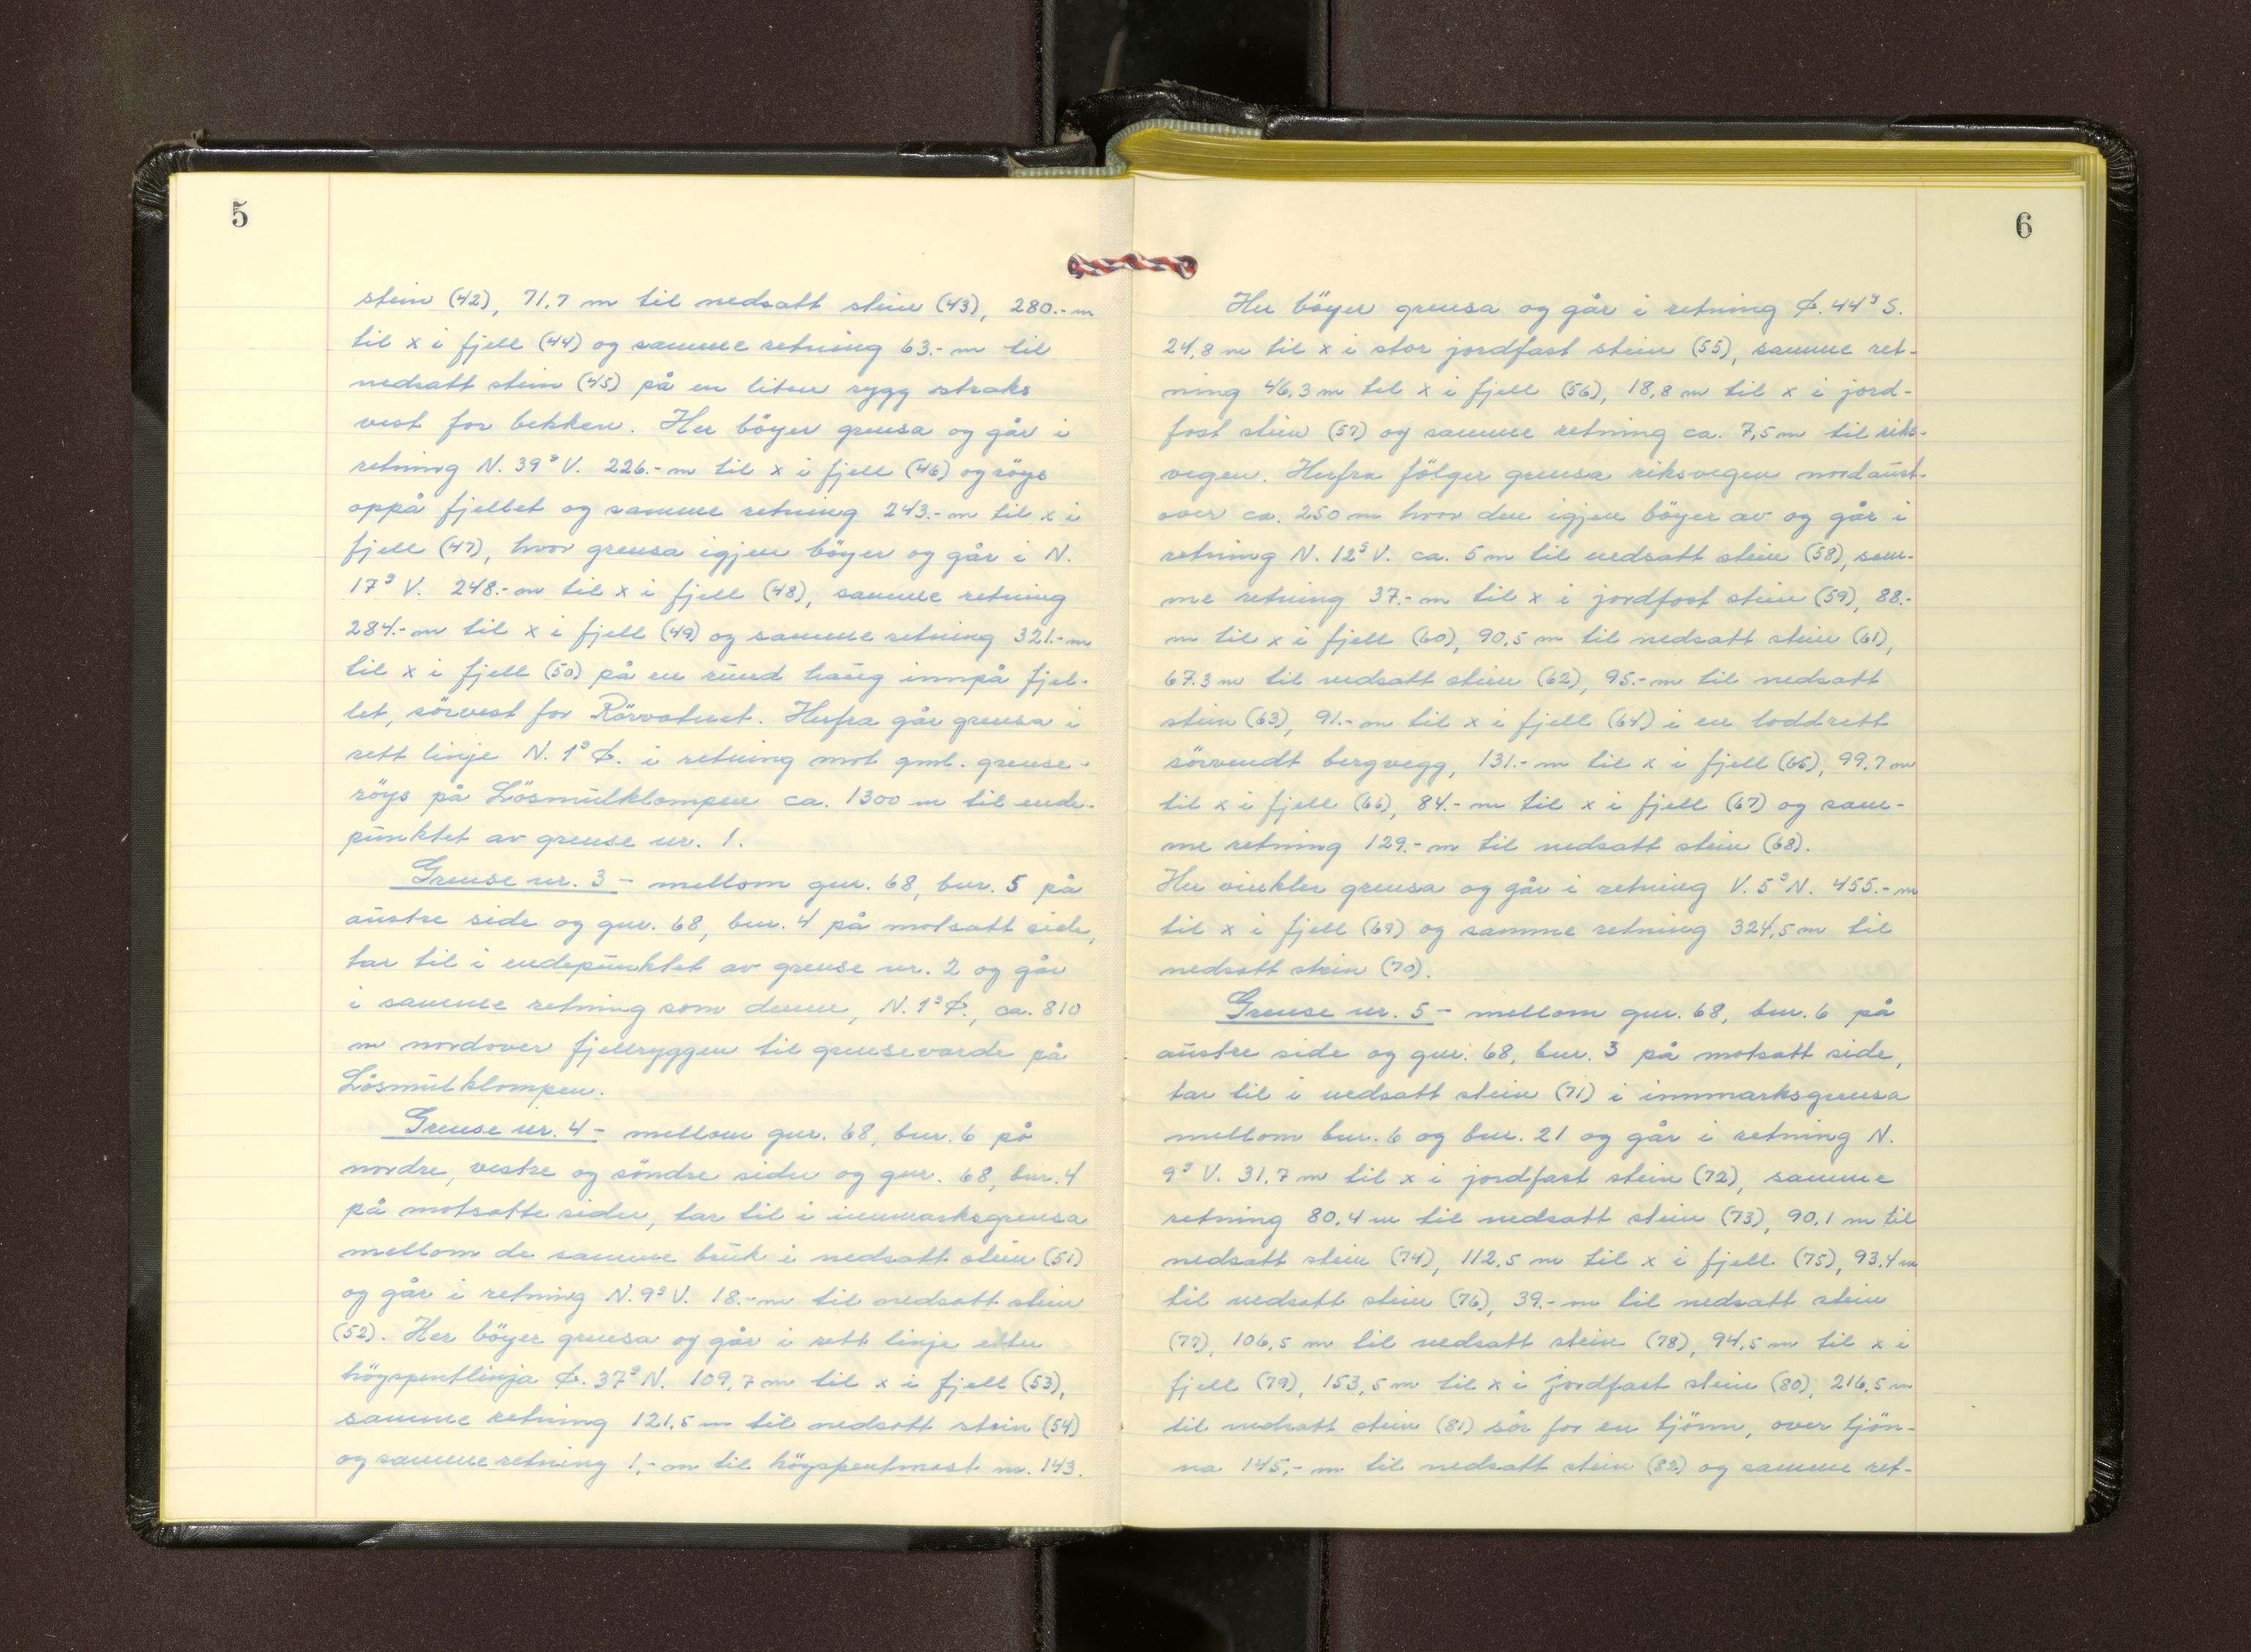 5
stein (42), 71,7 m til nedsatt stein (43), 280.- m
til x i fjell (44) og samme retning 63.- m til
nedsatt stein (45) på en liten rygg straks
vest for bekken. Her böyer grensa og går i
retning N. 39ᵍ V. 226.- m til x i fjell (46) og röys
oppå fjellet og samme retning 243.- m til x i
fjell (47), hvor grensa igjen böyer og går i N.
17ᵍ V. 248.- m til x i fjell (48), samme retning
284.- m til x i fjell (49) og samme retning 321.- m
til x i fjell (50) på en rund haug innpå fjel-
let, sörvest for Rörvatnet. Herfra går grensa i
rett linje N. 1ᵍ Ø. i retning mot gml. grense-
röys på Lösmulklompen ca. 1300 m til ende-
punktet av grense nr. 1.
Grense nr. 3 - mellom gnr. 68, bnr. 5 på
austre side og gnr. 68, bnr. 4 på motsatt side,
tar til i endepunktet av grense nr. 2 og går
i samme retning som denne, N. 1ᵍ Ø., ca. 810
m nordover fjellryggen til grensevarde på
Lösmulklompen.
Grense nr. 4 - mellom gnr. 68, bnr. 6 på
nordre, vestre og söndre sider og gnr. 68, bnr. 4
på motsatte sider, tar til i innmarksgrensa
mellom de samme bruk i nedsatt stein (51)
og går i retning N. 9ᵍ V. 18.- m til nedsatt stein
(52). Her böyer grensa og går i rett linje etter
högspentlinja Ø. 37ᵍ N. 109,7 m til x i fjell (53),
samme retning 121,5 m til nedsatt stein (54)
og samme retning 1,- m til högspentmast nr. 143.
6
Her böyer grensa og går i retning Ø. 44ᵍ S.
24,8 m til x i stor jordfast stein (55), samme ret-
ning 46,3 m til x i fjell (56), 18,8 m til x i jord-
fast stein (57) og samme retning ca. 7,5 m til riks-
vegen. Herfra fölger grensa riksvegen nordaust-
over ca. 250 m hvor den igjen böyer av og går i
retning N. 12ᵍ V. ca. 5 m til nedsatt stein (58), sam-
me retning 37.- m til x i jordfast stein (59), 88.-
m til x i fjell (60), 90,5 m til nedsatt stein (61),
67.3 m til nedsatt stein (62), 95.- m til nedsatt
stein (63), 91.- m til x i fjell (64) i en loddrett
sörvendt bergvegg, 131.- m til x i fjell (65), 99.7 m
til x i fjell (66), 84.- m til x i fjell (67) og sam-
me retning 129.- m til nedsatt stein (68).
Her vinkler grensa og går i retning V. 5ᵍ N. 455.- m
til x i fjell (69) og samme retning 324,5 m til
nedsatt stein (70).
Grense nr. 5 - mellom gnr. 68, bnr. 6 på
austre side og gnr. 68, bnr. 3 på motsatt side,
tar til i nedsatt stein (71) i innmarksgrensa
mellom bnr. 6 og bnr. 21 og går i retning N.
9ᵍ V. 31,7 m til x i jordfast stein (72), samme
retning 80,4 m til nedsatt stein (73), 90,1 m til
nedsatt stein (74), 112,5 m til x i fjell (75), 93,4 m
til nedsatt stein (76), 39.- m til nedsatt stein
(77), 106,5 m til nedsatt stein (78), 94,5 m til x i
fjell (79), 153,5 m til x i jordfast stein (80), 216,5 m
til nedsatt stein (81) sör for en tjönn, over tjön-
na 145,- m til nedsatt stein (82) og samme ret-